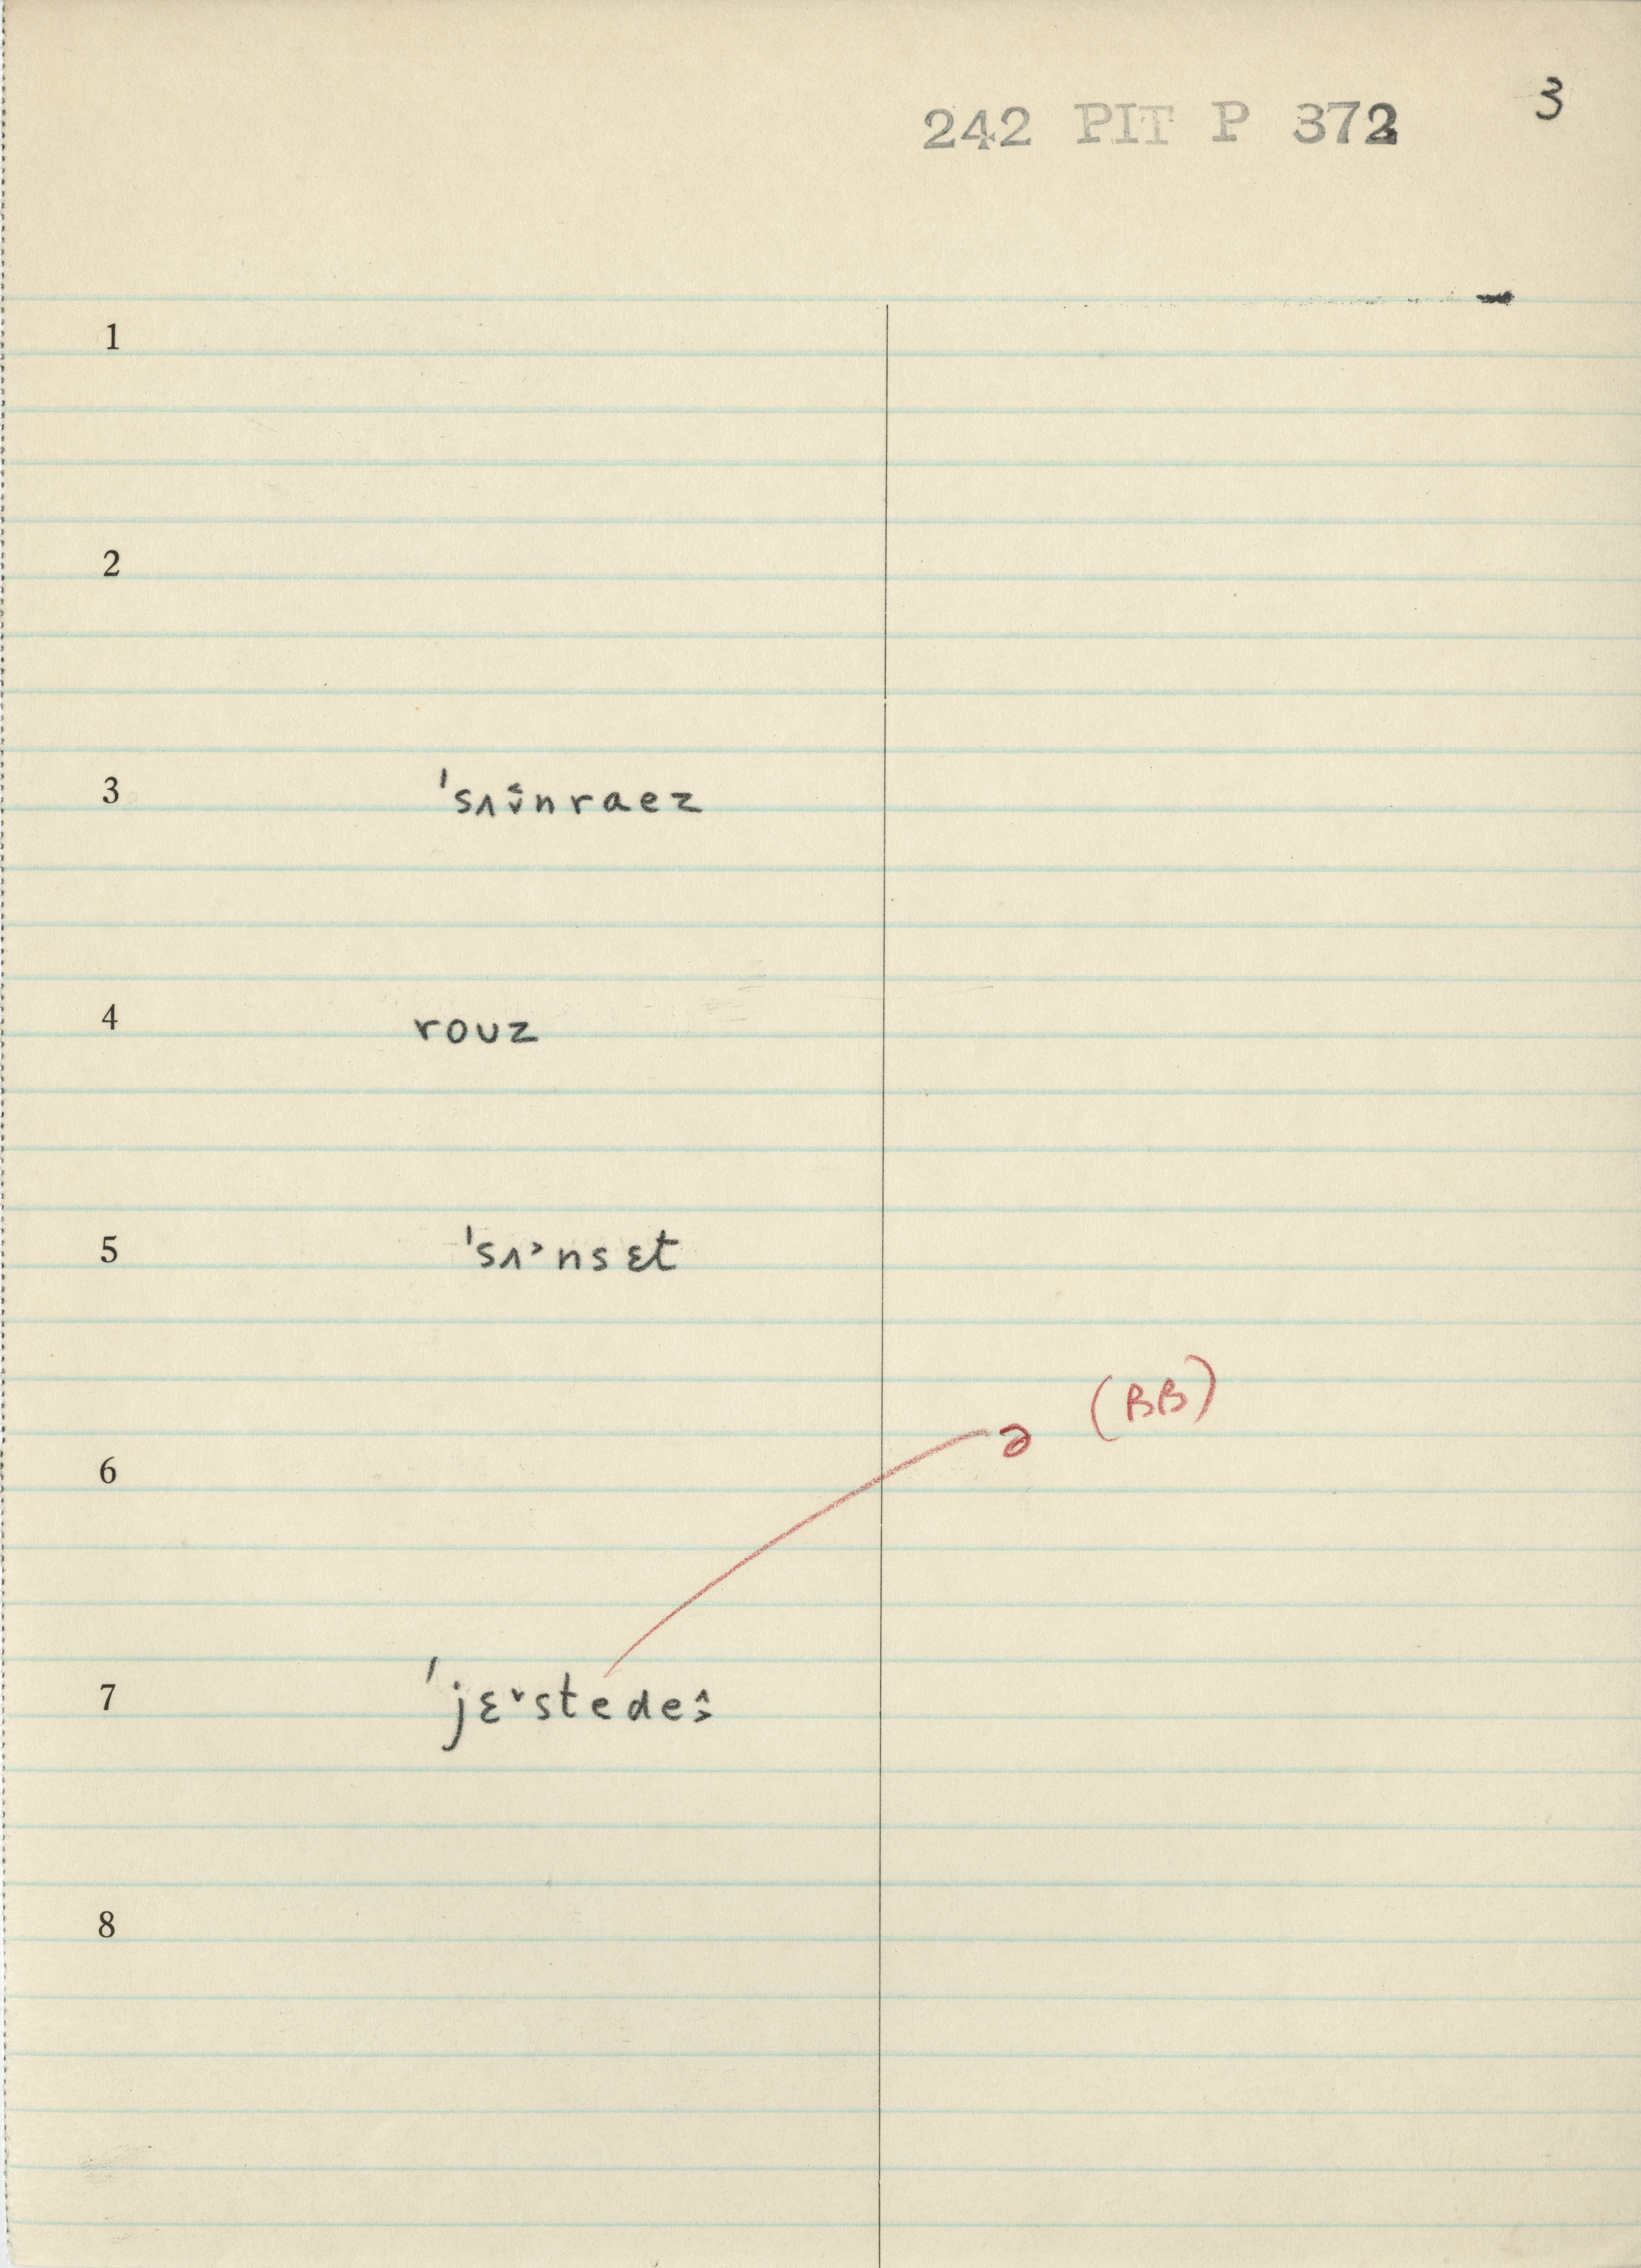 242 PIT P 372
3
1
2
3 ˈsʌ˂̬nraez
4 rouz
5 ˈsʌ˃nsɛt
(BB)
ə
6
7 ˈjɛ˅stede˄˃
8